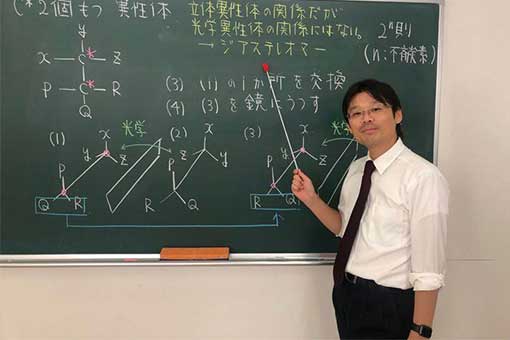 (*2個もつ 異性体
立体異性体の関係だが
光学異性体の関係にはならない
→ ジアステレオマー
2ⁿ則
(n:不斉炭素)
Y
X C* Z
P C* R
Q
(3) (1)の1か所を交換
(4) (3)を鏡にうつす
(1) 光学 (2) (3) 光学
X X X
Y Z Z Y Y Z
P P P
Q R R Q